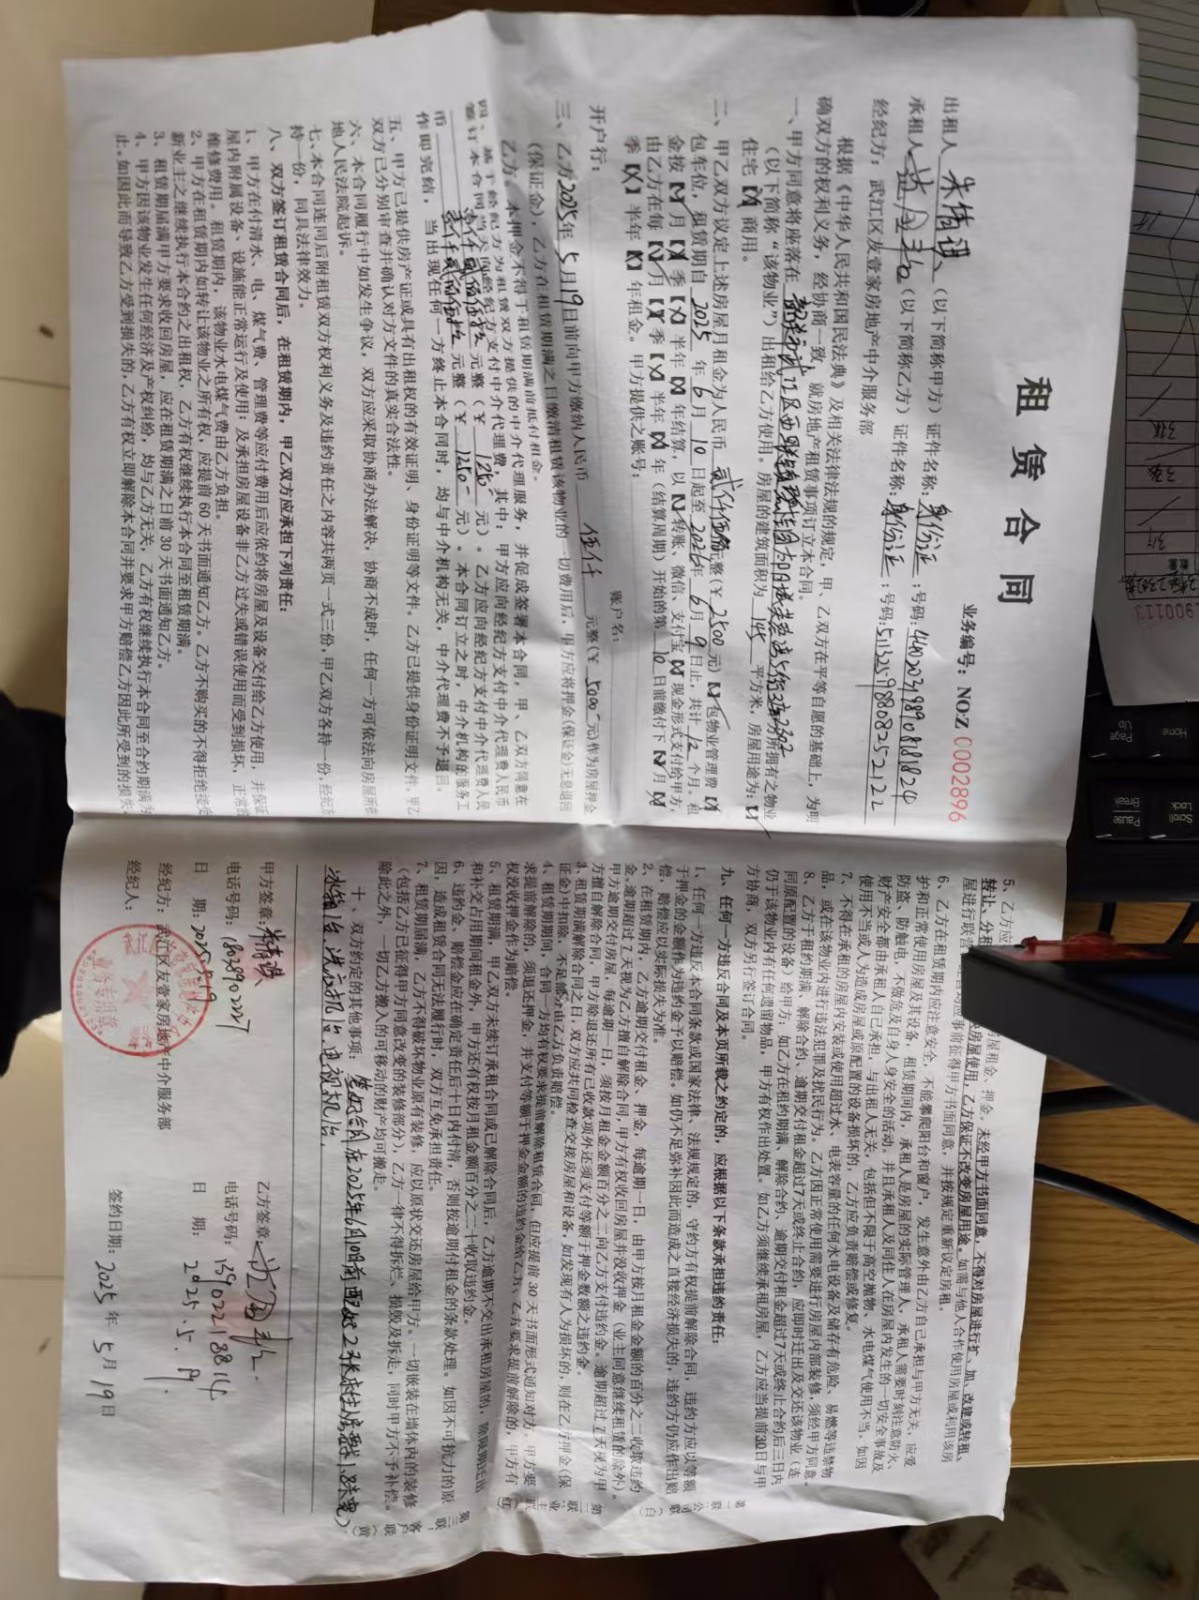 租赁合同
业务编号：NO:Z 0002896
出租人（以下简称甲方）证件名称：身份证：号码：
承租人（以下简称乙方）证件名称：身份证：号码：511521198808252122
经纪方：武江区友壹家房地产中介服务部
根据《中华人民共和国民法典》及相关法律法规的规定，甲、乙双方在平等自愿的基础上，为明
确双方的权利义务，经协商一致，就房地产租赁事项订立本合同。
一、甲方同意将座落在 韶关市武江区 房所拥有之物业
（以下简称“该物业”）出租给乙方使用。房屋的建筑面积为 145 平方米，房屋用途为：【】
住宅【】商用。
二、甲乙双方议定上述房屋月租金为人民币 贰仟伍佰 元整（￥2500 元）【】包物业管理费【】
包车位，租赁期自 2025 年 6 月 10 日起至 2026 年 6 月 9 日止，共计 12 个月。租
金按【】月【】季【】半年【】年结算，以【】转账、微信、支付宝【】现金形式支付给甲方，
由乙方在每【】月【】季【】半年【】年（结算周期）开始的第 10 日前缴付下【】月【】
季【】半年【】年租金。甲方提供之账号：
开户行： 账户名：
三、乙方 2025 年 5 月 19 日前向甲方缴纳人民币 伍仟 元整（￥ 5000 元)作为房屋押金
（保证金），乙方在租赁期满之日缴清租赁该物业的一切费用后，甲方应将押金（保证金）无息退回
乙方，本押金不得于租赁期满前抵付租金。
四、基于经纪方为租赁双方提供的中介代理服务，并促成签署本合同，甲、乙双方同意在
签订本合同当天向经纪方支付中介代理费，其中：甲方应向经纪方支付中介代理费人民币
壹仟贰佰伍拾 元整（￥ 1250 元）。乙方应向经纪方支付中介代理费人民
币 壹仟贰佰伍拾 元整（￥ 1250 元）。本合同订立之时，中介机构的服务工
作即完结，当出现任何一方终止本合同时，均与中介机构无关，中介代理费不予退回。
五、甲方已提供房产证或具有出租权的有效证明、身份证明等文件。乙方已提供身份证明文件。甲乙
双方已分别审查并确认对方文件的真实合法性。
六、本合同履行中如发生争议，双方应采取协商办法解决，协商不成时，任何一方可依法向房屋所在
地人民法院起诉。
七、本合同连同后附租赁双方权利义务及违约责任之内容共两页一式三份，甲乙双方各持一份，经纪方
持一份，同具法律效力。
八、双方签订租赁合同后，在租赁期内，甲乙双方应承担下列责任：
1、甲方在付清水、电、煤气费、管理费等应付费用后应依约将房屋及设备交付给乙方使用，并保证
屋内附属设备、设施能正常运行及使用；及承担房屋设备非乙方过失或错误使用而受到损坏，正常的
维修费用。租赁期内，该物业水电煤气费由乙方负担。
2、甲方在租赁期内如转让该物业之所有权，应提前 60 天书面通知乙方。乙方不购买的不得拒绝接受
新业主之继续执行本合约之出租权，乙方有权继续执行本合同至租赁期满。
3、租赁期届满甲方要求收回房屋，应在租赁期满之日前 30 天书面通知乙方。
4、甲方因该物业发生任何经济及产权纠纷，均与乙方无关，乙方有权继续执行本合同至合约期满为
止。如因此而导致乙方受到损失的，乙方有权立即解除本合同并要求甲方赔偿乙方因此所受到的损失
5、乙方应 房屋租金、押金。未经甲方书面同意，不得对房屋进行扩、加、改建或转租、
转让、分租 房屋使用，乙方保证不改变房屋用途。如需与他人合作使用房屋或利用该房
屋进行联营 事前征得甲方书面同意，并按规定重新议定房租。
6、乙方在租赁期内应注意安全，不能攀爬阳台和窗户，发生意外由乙方自己承担与甲方无关，应爱
护和正常使用房屋及其设备，租赁期间内，承租人是房屋的实际管理人，承租人需要时刻注意防火、
防盗、防触电，不做危及自身人身安全的活动。并且承租人及同住人在房屋内发生的一切安全事故及
财产安全都由承租人自己承担，与出租人无关，包括但不限于高空抛物，水电煤气使用不当。如因
使用不当或人为造成房屋或原配置的设备损坏的，乙方应负责赔偿或修复。
7、不得在承租的房屋内安装或使用超过水、电表容量的任何水电设备及储存有危险、易燃等违禁物
品，或在该物业内进行违法犯罪及扰民行为。乙方因正常使用需要进行房屋内部装修，须经甲方同意。
8、乙方于租约期满、解除合约、逾期交付租金超过7天或终止合约，应即时迁出及交还该物业（连
同原配置的设备）给甲方；如乙方在租约期满、解除合约、逾期交付租金超过7天或终止合约后三日内
仍于该物业内有任何遗留物品，甲方有权作出处置。如乙方须继续承租房屋，乙方应当提前30日与甲
方协商，双方另行签订合同。
九、任何一方违反合同及本页所载之约定的，应根据以下条款承担违约责任：
1、任何一方违反本合同条款或国家法律、法规规定的，守约方有权提前解除合同，违约方应以等额
于押金的金额作为违约金予以赔偿。如仍不足弥补因此而造成之直接经济损失的，违约方仍应作出赔
偿，赔偿应以实际损失为准。
2、在租赁期内，乙方逾期交付租金、押金，每逾期一日，由甲方按月租金金额的百分之二收取违约
金。逾期超过7天视为乙方擅自解除合同，甲方有权收回房屋并没收押金（业主同意继续租赁的除外）。
甲方逾期交付房屋，每逾期一日，须按月租金金额百分之二向乙方支付违约金。逾期超过7天视为甲
方擅自解除合同，甲方除退还所有已收款项外还须支付等额于押金数额之违约金。
3、租赁期满解除合同之日，双方应共同检查交接房屋和设备，如发现有人为损坏的，则在乙方押金（保
证金）中扣除，不足部分由乙方负责赔偿。
4、租赁期间，合同一方均有权要求提前解除租赁合同，但应提前 30 天书面形式通知对方。甲方要
求提前解除的，须退还押金，并支付等额于押金金额的违约金给乙方；乙方要求提前解除的，甲方有
权没收押金作为赔偿。
5、租赁期满，甲乙双方未续订承租合同或已解除合同后，乙方逾期不交出承租房屋的，除限期迁出
和补交占用期间租金外，甲方还有权按月租金额百分之二十收取违约金。
6、违约金、赔偿金应在确定责任后十日内付清，否则按逾期付租金的条款处理。如因不可抗力的原
因，造成租赁合同无法履行时，双方互免承担责任。
7、租赁期届满，乙方不得破坏物业原有装修，应以原状交还房屋给甲方。一切嵌装在墙体内的装修
（包括乙方已征得甲方同意改变的装修部分），乙方一律不得拆烂、损毁及拆走，同时甲方不予补偿。
除此之外，一切乙方搬入的可移动的财产均可搬走。
十、双方约定的其他事项：
冰箱1台，洗衣机1台，电视机1台
甲方签章： 乙方签章：
电话号码：18028902227 电话号码：13902218814
日 期：2025.5.19 日 期：2025.5.19.
经纪方：武江区友壹家房地产中介服务部
经纪人： 签约日期：2025 年 5 月 19 日
业务专用章
第一联：公司（白）
第二联：业主（红）
第三联：客户（黄）